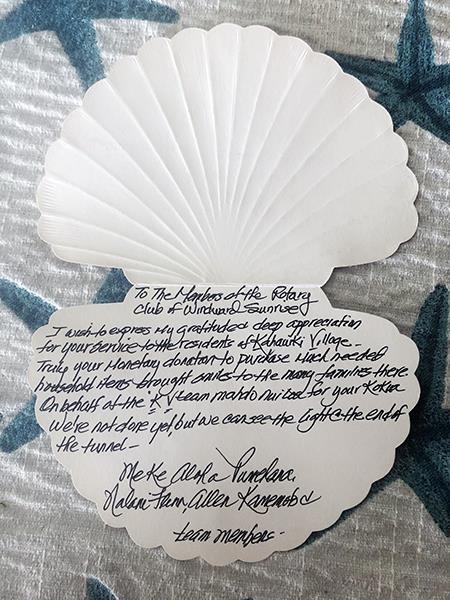 To The Members of the Rotary
Club of Windward Sunrise,
I wish to express my gratitude & deep appreciation
for your service to the residents of Kahauiki Village.
Truly your Monetary donation to purchase much needed
household items brought smiles to the many families there
On behalf of the "KV" team mahalo nui loa for your Kokua
We're not done yet, but we can see the light @ the end of
the tunnel —
Me Ke Aloha Pumehana,
Nalani Allen
team members -